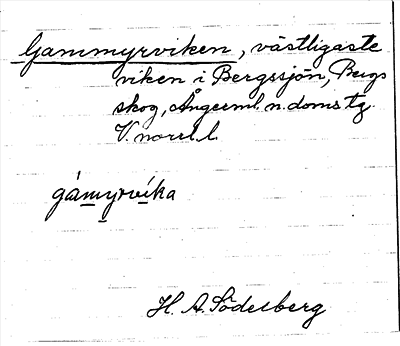 Gammyrviken, västligaste
viken i Bergssjön, Bergs
skog, Ångerml. n. doms. tg.
V. norrl. l.
gámyrvíka
H. A. Söderberg